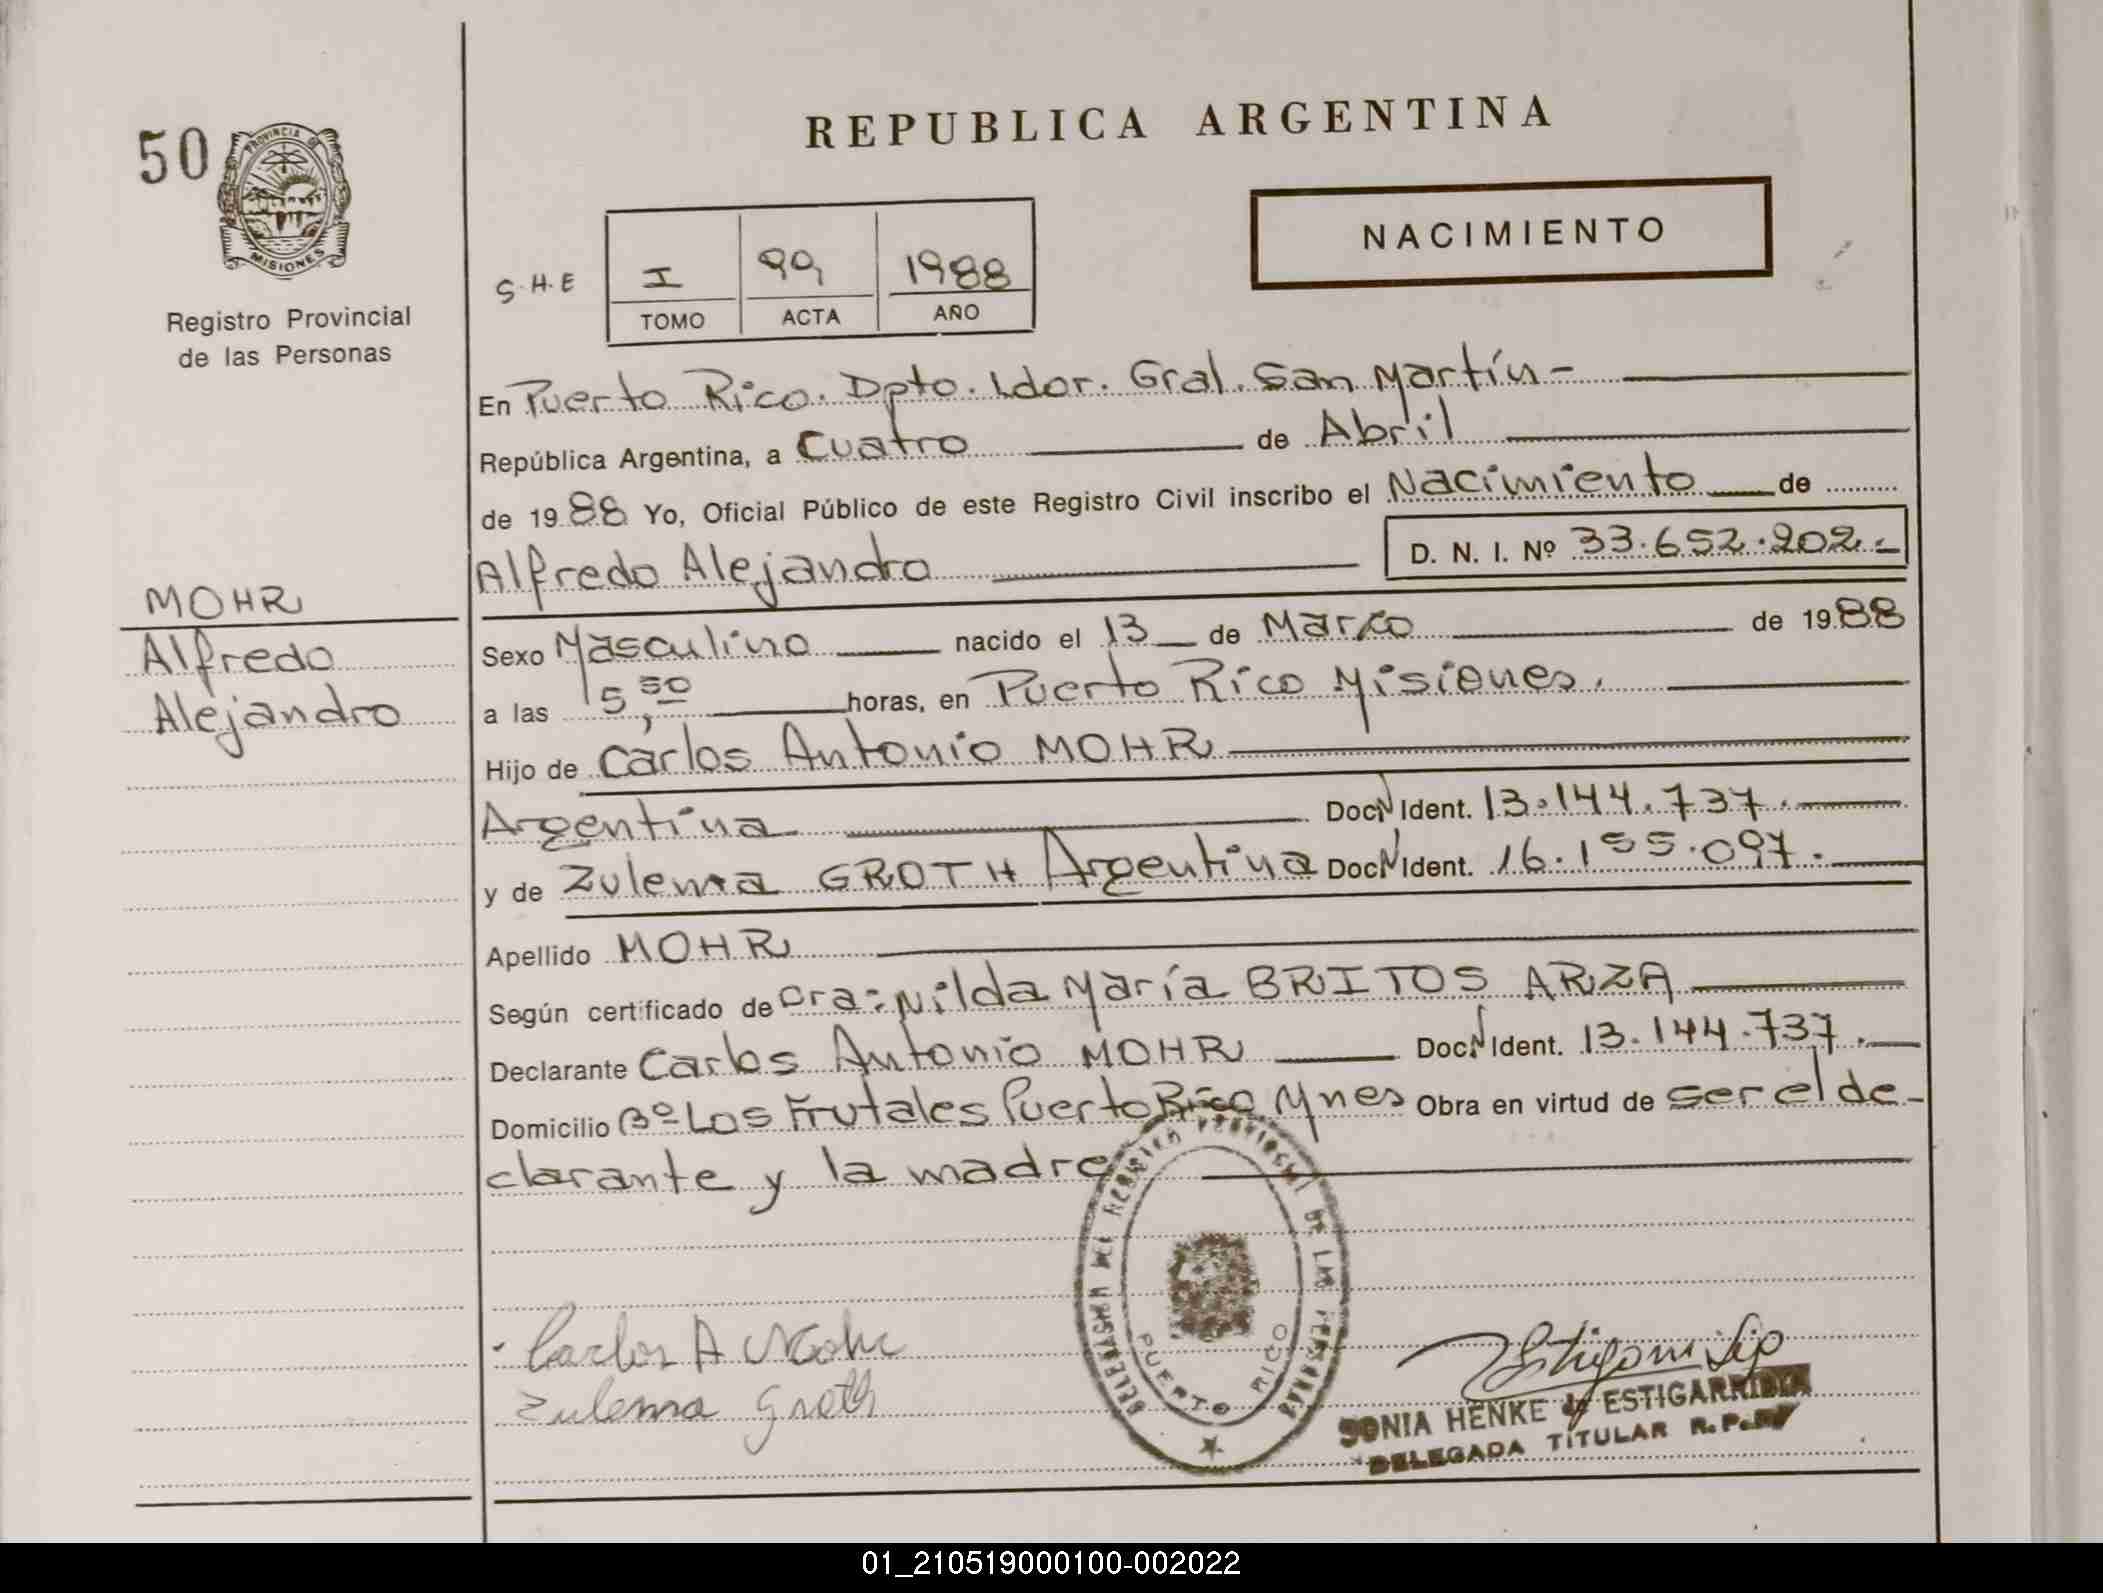 REPUBLICA ARGENTINA
50
PROVINCIA DE
MISIONES
Registro Provincial
de las Personas
NACIMIENTO
S.H.E
I 99 1988
TOMO ACTA AÑO
En Puerto Rico. Dpto. Ldor. Gral. San Martín-
República Argentina, a Cuatro de Abril
de 1988 Yo, Oficial Público de este Registro Civil inscribo el Nacimiento de
Alfredo Alejandro D. N. I. Nº 33.652.202.-
MOHR
Alfredo
Alejandro
Sexo Masculino nacido el 13 de Marzo de 1988
a las 15,50 horas, en Puerto Rico Misiones.
Hijo de Carlos Antonio MOHR
Argentina Doc. N Ident. 13.144.737.
y de Zulema GROTH Argentina Doc. N Ident. 16.155.097.
Apellido MOHR
Según certificado de Dra: Nilda María BRITOS ARZA
Declarante Carlos Antonio MOHR Doc. N Ident. 13.144.737.
Domicilio Bº Los Frutales Puerto Rico Mnes Obra en virtud de ser el de-
clarante y la madre
DELEGACION DEL REGISTRO PROVINCIAL DE LAS PERSONAS
PUERTO RICO
Carlos A Mohr
Zulema Groth
SONIA HENKE de ESTIGARRIBIA
DELEGADA TITULAR R.P.P.
01_210519000100-002022